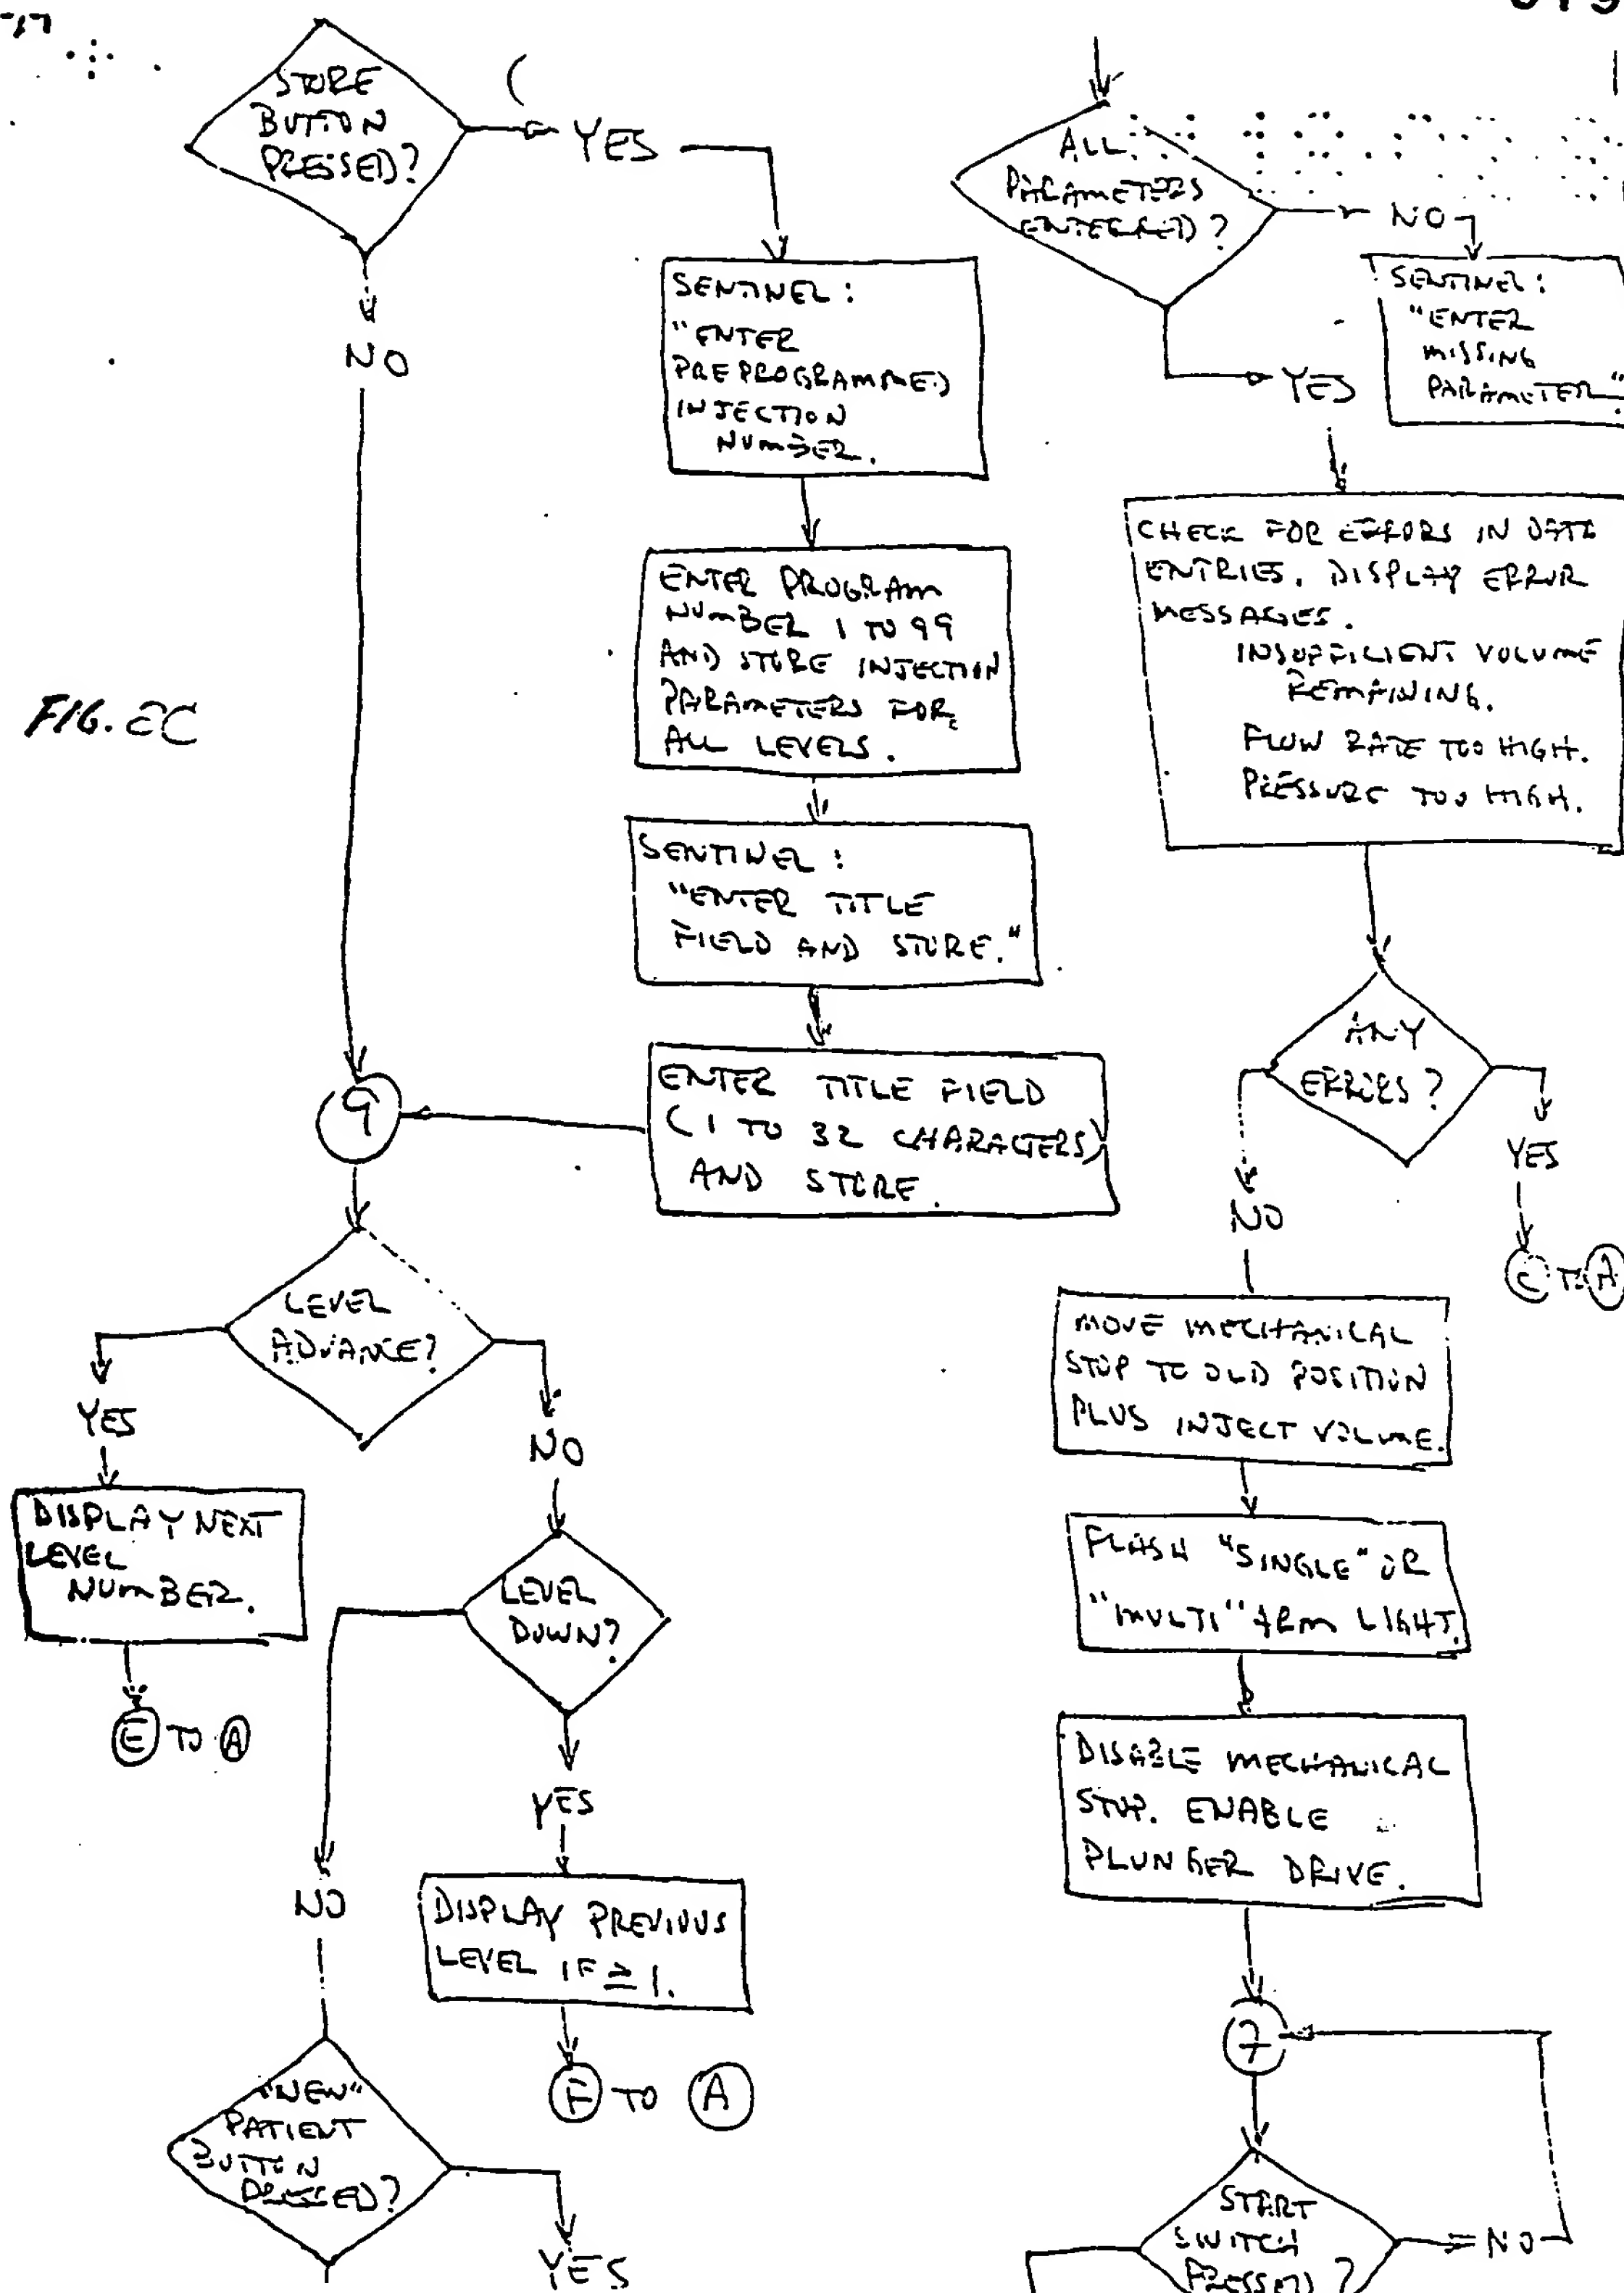 STORE
BUTTON
PRESSED?
YES
NO
SENTINEL:
"ENTER
PREPROGRAMMED
INJECTION
NUMBER.
ENTER PROGRAM
NUMBER 1 TO 99
AND STORE INJECTION
PARAMETERS FOR
ALL LEVELS.
SENTINEL:
"ENTER TITLE
FIELD AND STORE."
ENTER TITLE FIELD
(1 TO 32 CHARACTERS)
AND STORE.
9
LEVEL
ADVANCE?
YES
DISPLAY NEXT
LEVEL
NUMBER.
E TO A
NO
LEVEL
DOWN?
YES
DISPLAY PREVIOUS
LEVEL IF ≥ 1.
F TO A
NO
"NEW"
PATIENT
BUTTON
PRESSED?
YES
FIG.
ALL
PARAMETERS
ENTERED?
NO
SENTINEL:
"ENTER
MISSING
PARAMETER."
YES
CHECK FOR ERRORS IN DATA
ENTRIES. DISPLAY ERROR
MESSAGES.
INSUFFICIENT VOLUME
REMAINING.
FLOW RATE TOO HIGH.
PRESSURE TOO HIGH.
ANY
ERRORS?
YES
C TO A
NO
MOVE MECHANICAL
STOP TO OLD POSITION
PLUS INJECT VOLUME.
FLASH "SINGLE" OR
"MULTI" ARM LIGHT.
DISABLE MECHANICAL
STOP. ENABLE
PLUNGER DRIVE.
7
START
SWITCH
PRESSED?
NO